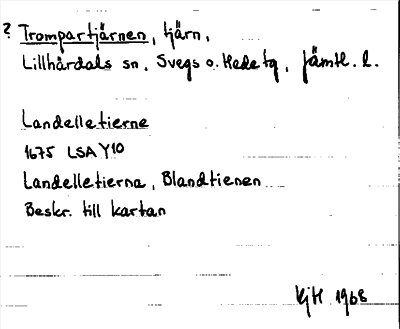 ? Trompartjärnen, tjärn,
Lillhärdals sn. Svegs o. Hede tg, Jämtl. l.
Landelletierne
1675 LSA Y10
Landelletierna, Blandtienen
Beskr. till kartan
KjH 1968